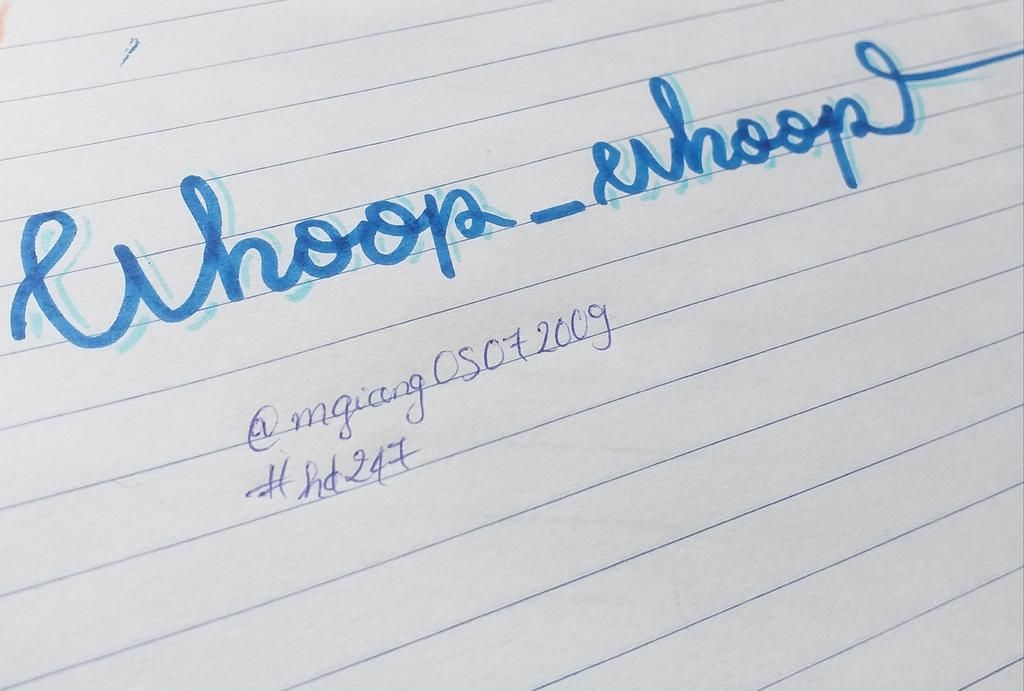 whoop_whoop
@mgiang05072009
#hd247